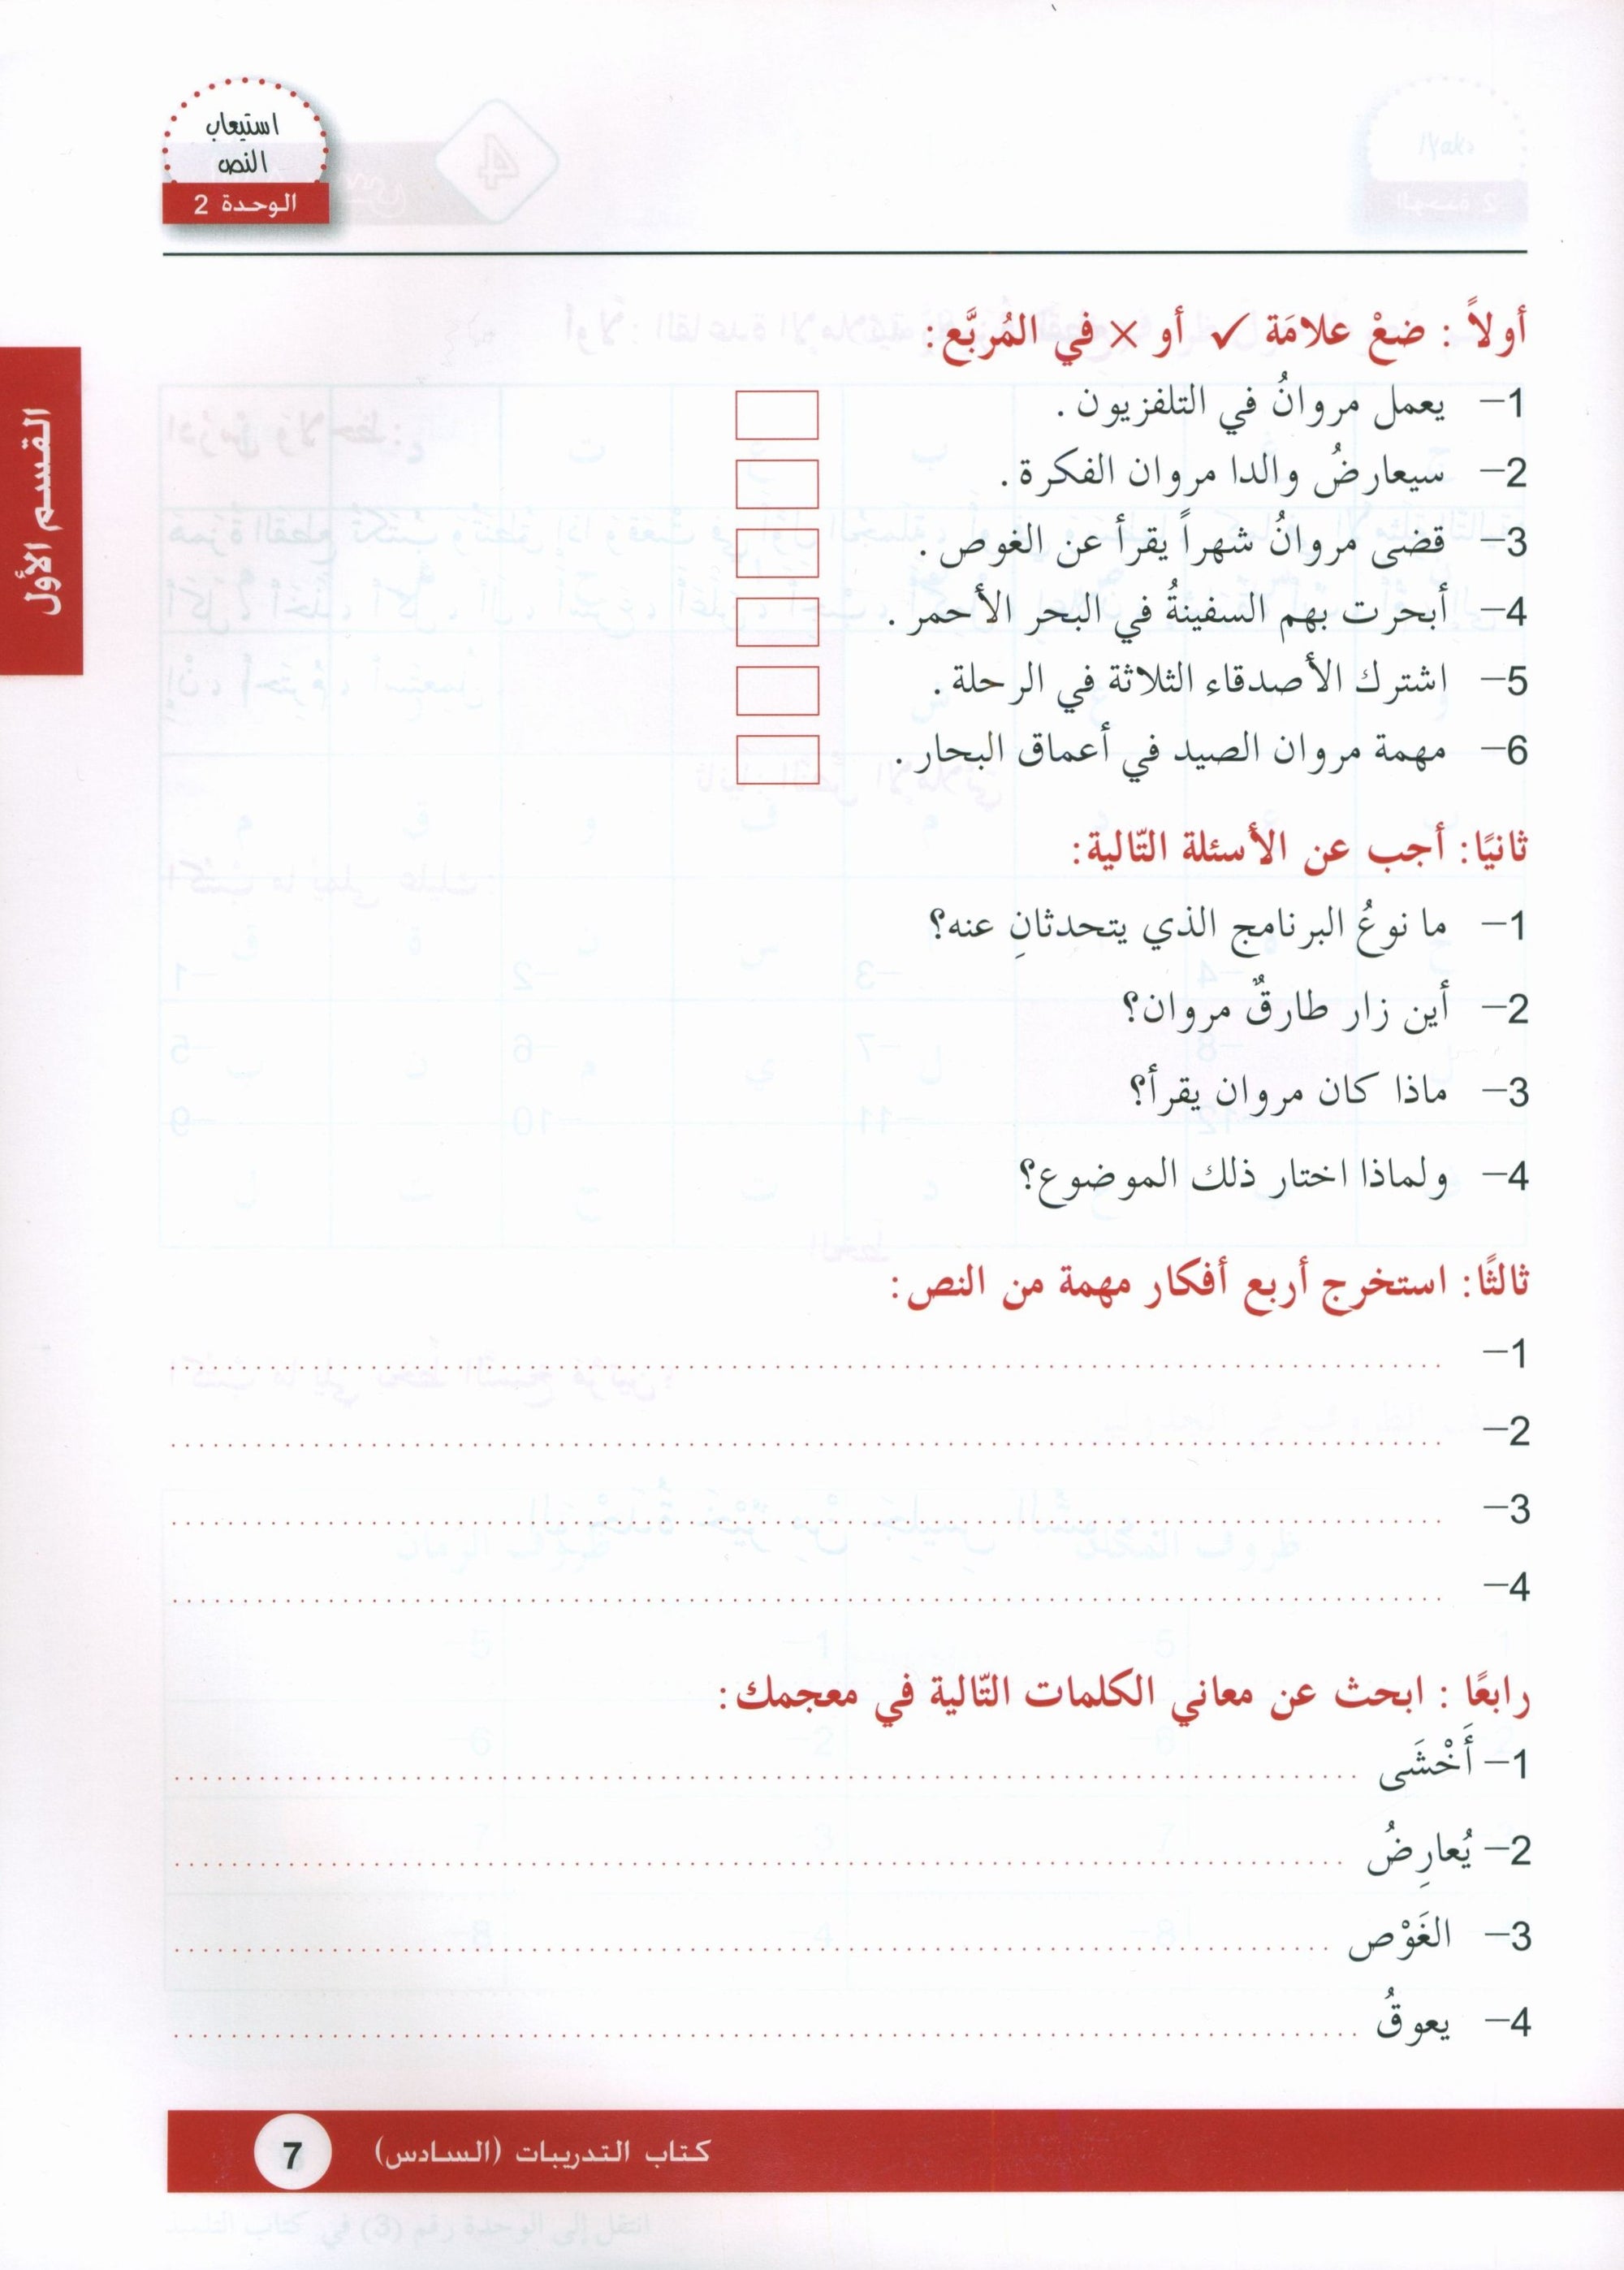 استيعاب
النص
الوحدة 2
القسم الأول
أولاً : ضعْ علامَة ✓ أو × في المُربَّع:
1– يعمل مروانُ في التلفزيون .
2– سيعارضُ والدا مروان الفكرة .
3– قضى مروانُ شهراً يقرأ عن الغوص .
4– أبحرت بهم السفينةُ في البحر الأحمر .
5– اشترك الأصدقاء الثلاثة في الرحلة .
6– مهمة مروان الصيد في أعماق البحار .
ثانيًا: أجب عن الأسئلة التّالية:
1– ما نوعُ البرنامج الذي يتحدثانِ عنه؟
2– أين زار طارقٌ مروان؟
3– ماذا كان مروان يقرأ؟
4– ولماذا اختار ذلك الموضوع؟
ثالثًا: استخرج أربع أفكار مهمة من النص:
1–
2–
3–
4–
رابعًا : ابحث عن معاني الكلمات التّالية في معجمك:
1– أَخْشَى
2– يُعارِضُ
3– الغَوْص
4– يعوقُ
كتاب التدريبات (السادس) 7